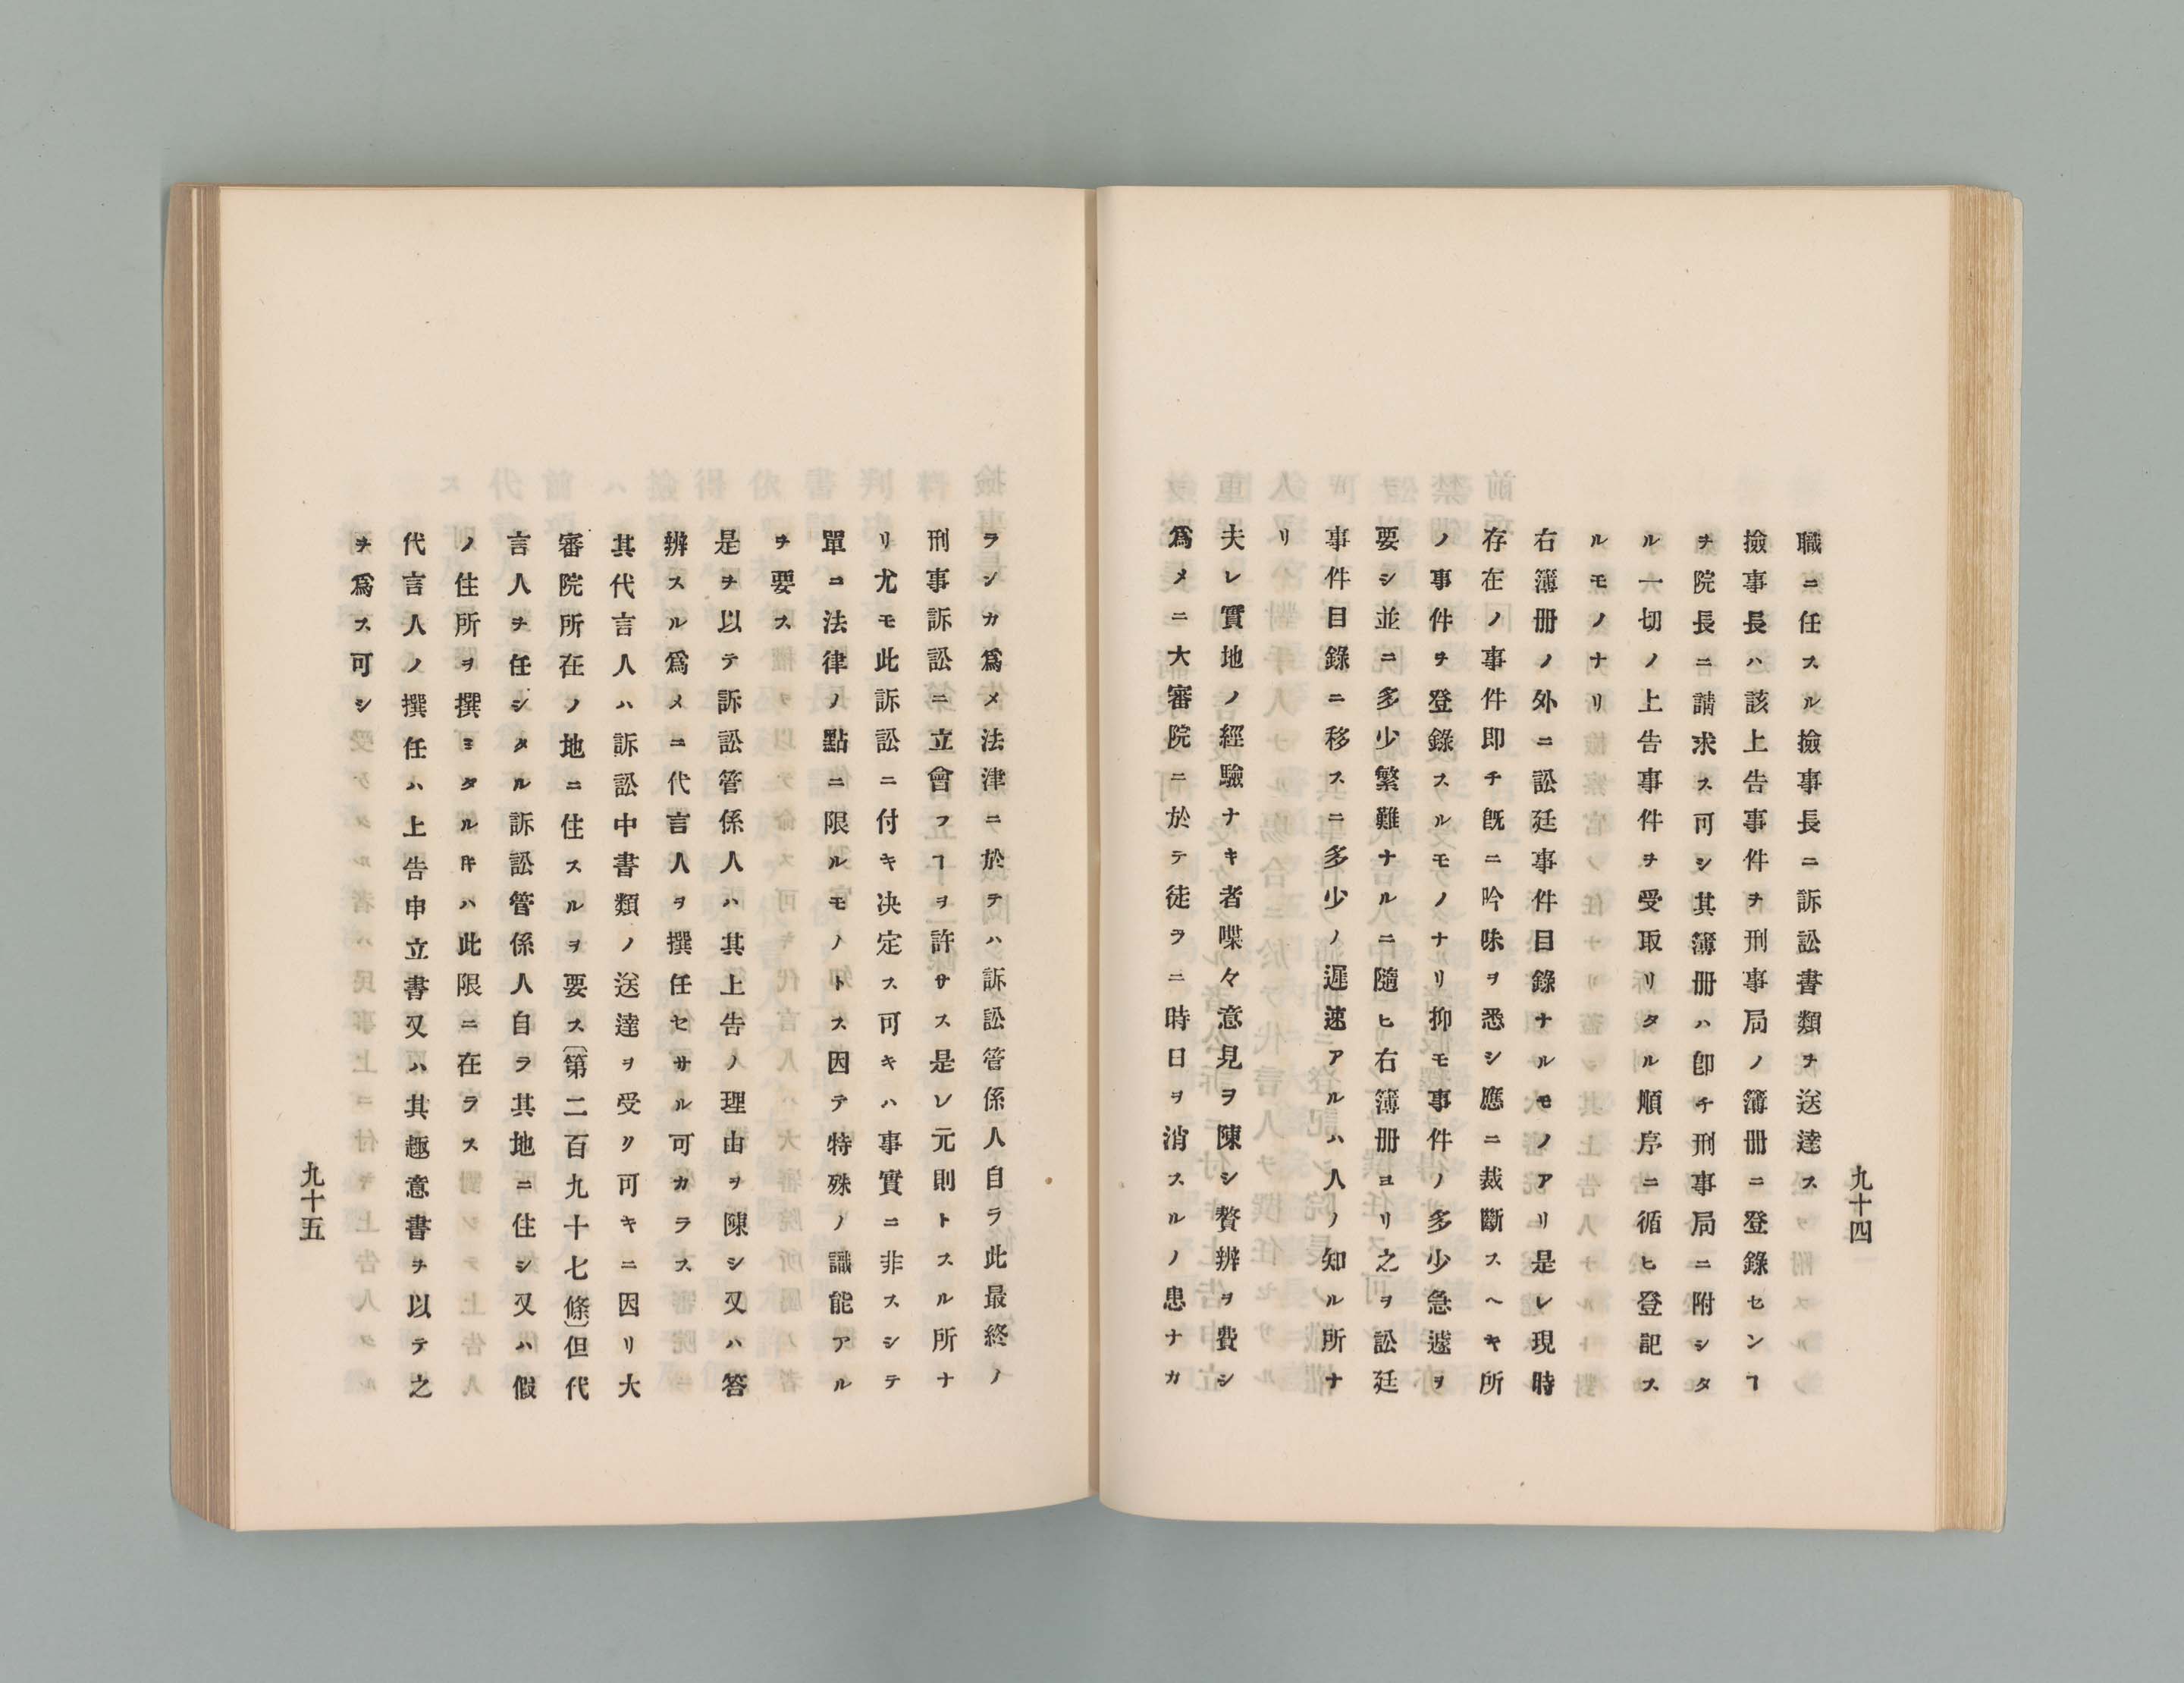 九十四
職ニ任スル撿事長ニ訴訟書類ヲ送達ス
撿事長ハ該上告事件ヲ刑事局ノ簿冊ニ登錄センヿ
ヲ院長ニ請求ス可シ其簿冊ハ卽チ刑事局ニ附シタ
ル一切ノ上告事件ヲ受取リタル順序ニ循ヒ登記ス
ルモノナリ
右簿冊ノ外ニ訟廷事件目錄ナルモノアリ是レ現時
存在ノ事件即チ既ニ吟味ヲ悉シ應ニ裁斷スヘキ所
ノ事件ヲ登錄スルモノナリ抑モ事件ノ多少急遽ヲ
要シ並ニ多少繁難ナルニ隨ヒ右簿冊ヨリ之ヲ訟廷
事件目錄ニ移スニ多少ノ遲速アルハ人ノ知ル所ナ
リ
夫レ實地ノ經驗ナキ者喋々意見ヲ陳シ贅辨ヲ費シ
爲メニ大審院ニ於テ徒ラニ時日ヲ消スルノ患ナカ
ラシカ爲メ法津ニ於テハ訴訟管係人自ラ此最終ノ
刑事訴訟ニ立會フヿヲ許サス是レ元則トスル所ナ
リ尤モ此訴訟ニ付キ决定ス可キハ事實ニ非スシテ
單ニ法律ノ點ニ限ルモノトス因テ特殊ノ識能アル
ヲ要ス
是ヲ以テ訴訟管係人ハ其上告ノ理由ヲ陳シ又ハ答
辨スル爲メニ代言人ヲ撰任セサル可カラス
其代言人ハ訴訟中書類ノ送達ヲ受ク可キニ因リ大
審院所在ノ地ニ住スルヲ要ス〔第二百九十七條〕但代
言人ヲ任シタル訴訟管係人自ラ其地ニ住シ又ハ假
ノ住所ヲ撰ミタルキハ此限ニ在ラス
代言人ノ撰任ハ上告申立書又ハ其趣意書ヲ以テ之
ヲ爲ス可シ
九十五